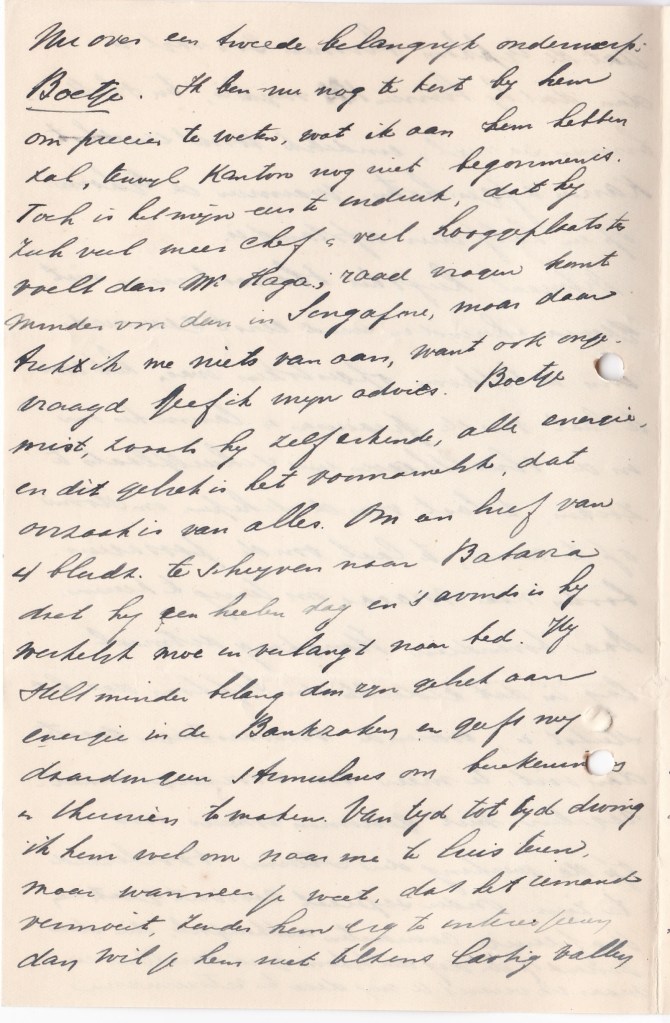 Nu over een tweede belangrijk onderwerp:
Boetje. Ik ben nu nog te kort bij hem
om precies te weten, wat ik aan hem hebben
zal, terwijl Kantoor nog niet begonnen is.
Toch is het mijn eerste indruk, dat hij
zich veel meer chef & veel hooggeplaatster
voelt dan Mr Haga; raad vragen komt
minder voor dan in Singapore, maar daar
trek ik me niets van aan, want ook onge-
vraagd geef ik mijn advies. Boetje
mist, zooals hij zelf erkende, alle energie,
en dit gebrek is het voornamelijk, dat
oorzaak is van alles. Om een brief van
4 bladz. te schrijven naar Batavia
doet hij een heelen dag en 's avonds is hij
werkelijk moe en verlangt naar bed. Hij
stelt minder belang dan zijn gebrek aan
energie in de Bankzaken en geeft mij
daardoor geen stimulans om berekeningen
& theorieën te maken. Van tijd tot tijd dwing
ik hem wel om naar me te luisteren,
maar wanneer je weet, dat het iemand
vermoeit, zonder hem erg te interesseeren
dan wil je hem niet telkens lastig vallen